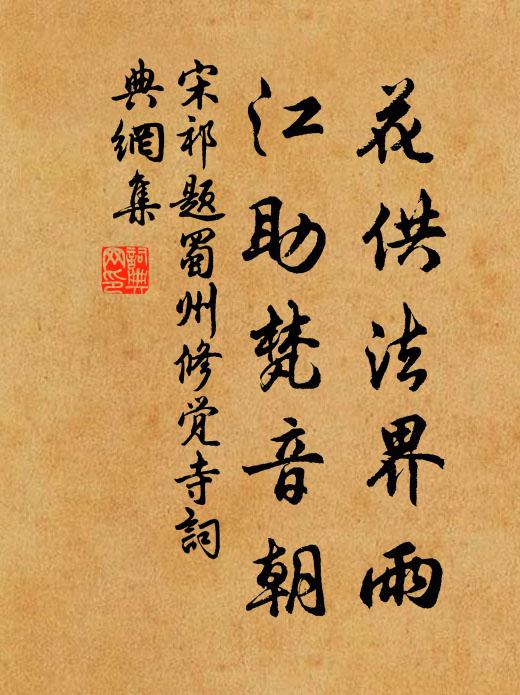 花供法界雨
江助梵音朝
宋祁题蜀州修觉寺詞
典網集
詞典
网印